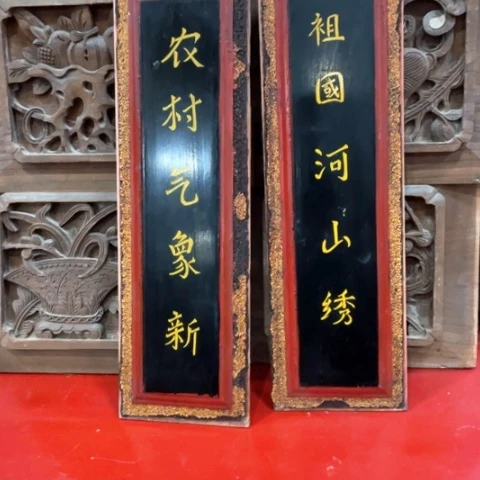 祖國河山绣
农村气象新